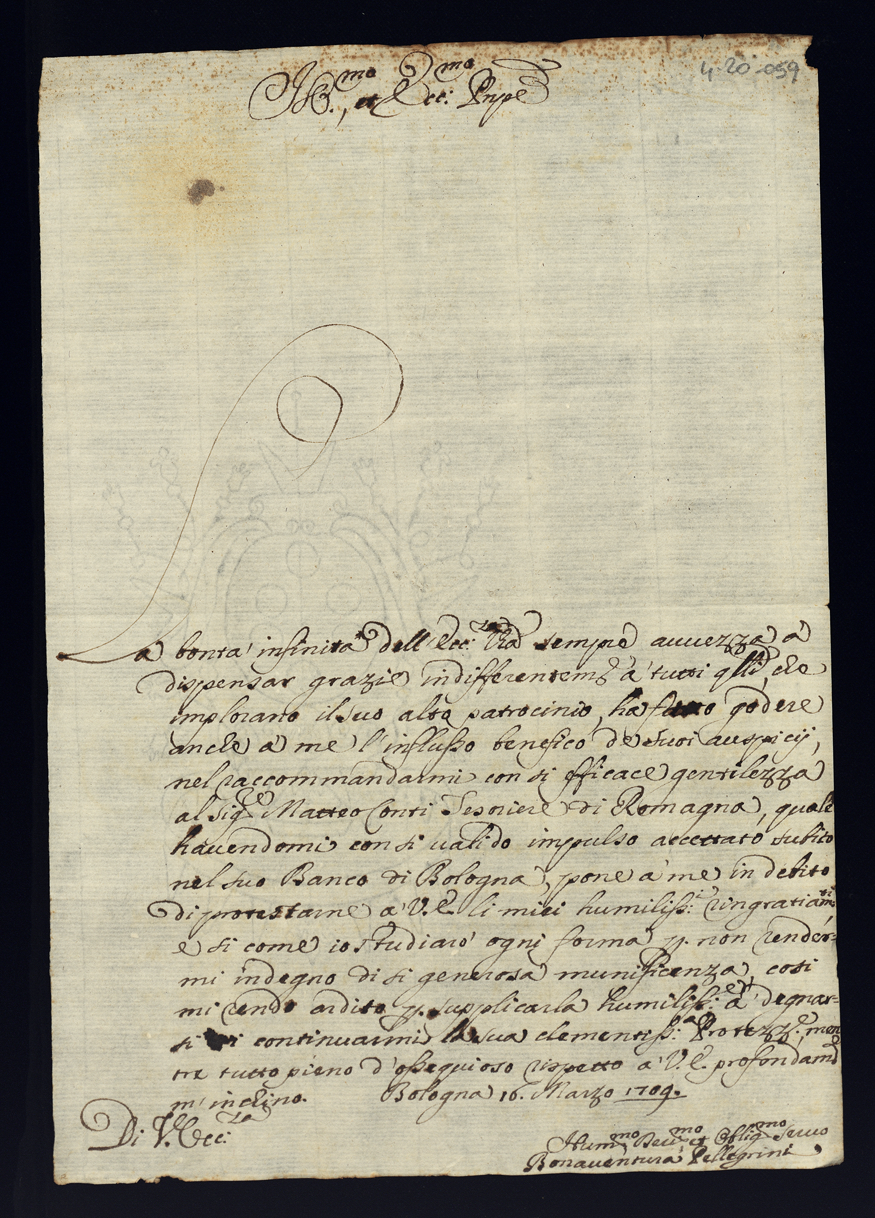 4-20-059
Ill.mo, et Ecc.mo Pnpe
La bontà infinità dell'Ecc.za Vra sempre auuezza à
dispensar grazie indifferentemte à tutti qlli, che
implorano il suo alto patrocinio, ha fatto godere
anche à me l'influsso benefico de suoi auspicij,
nel raccommandarmi con si efficace gentilezza
al Sigre Matteo Conti Tesoriere di Romagna, quale
hauendomi con si ualido impulso accettato subito
nel suo Banco di Bologna, pone à me in debito
di protestarne à V.E. li miei humiliss:i ringratiamti
e si come io studiarò ogni forma p. non render=
mi indegno di si generosa munificenza, cosi
mi rendo ardito p. supplicarla humiliss: à degnar=
si di continuarmi la sua clementiss:a Protezze, men
tre tutto pieno d'ossequioso rispetto à V.E. profondamte
m'inchino. Bologna 16. Marzo 1709.
Di V. Ecc:za
Hummo Deumo et Obligmo Seruo
Bonauentura Pellegrini